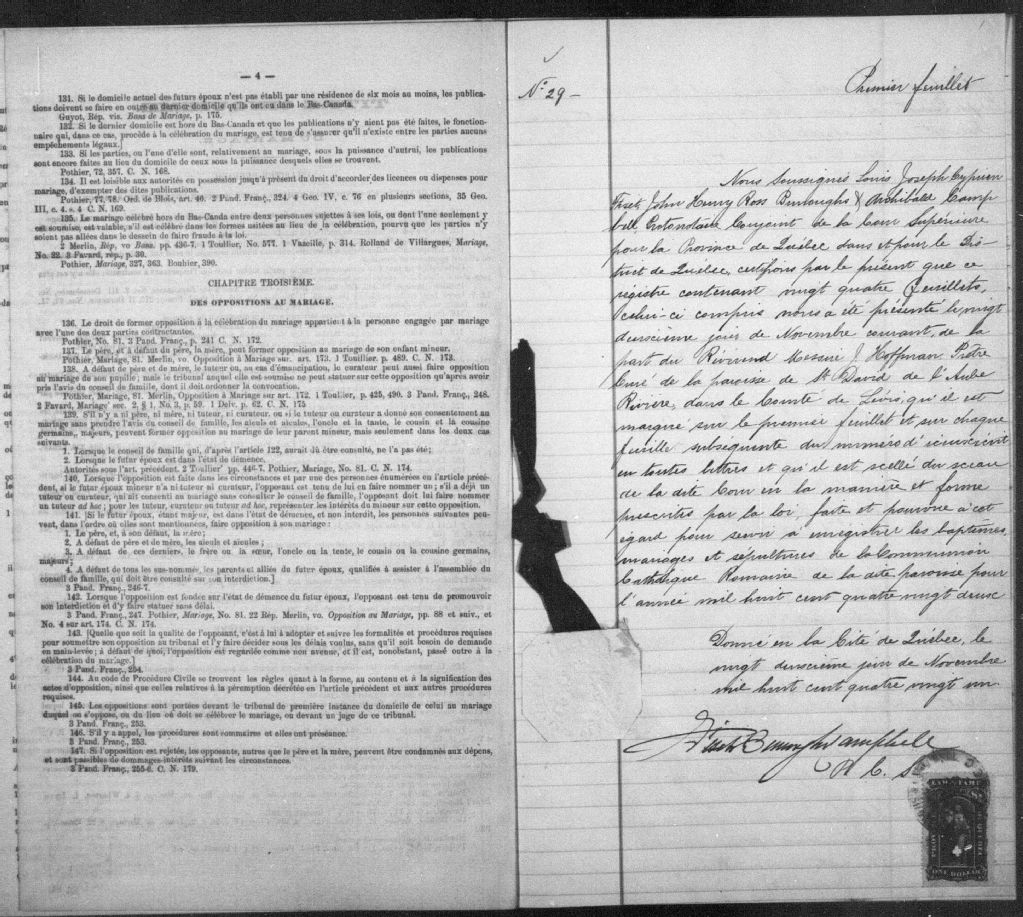 — 4 —
131. Si le domicile actuel des futurs époux n'est pas établi par une résidence de six mois au moins, les publica-
tions doivent se faire en outre au dernier domicile qu'ils ont eu dans le Bas-Canada.
Guyot, Rép. vis. Bans de Mariage, p. 175.
132. Si le dernier domicile est hors du Bas-Canada et que les publications n'y aient pas été faites, le fonction-
naire qui, dans ce cas, procède à la célébration du mariage, est tenu de s'assurer qu'il n'existe entre les parties aucuns
empêchements légaux.]
133. Si les parties, ou l'une d'elles, sont, relativement au mariage, sous la puissance d'autrui, les publications
sont encore faites au lieu du domicile de ceux sous la puissance desquels elles se trouvent.
Pothier, 72, 357. C. N. 168.
134. Il est loisible aux autorités en possession jusqu'à présent du droit d'accorder des licences ou dispenses pour
mariage, d'exempter des dites publications.
Pothier, 77, 78. Ord. de Blois, art. 40. 2 Pand. Franç., 324. 4 Geo. IV, c. 76 en plusieurs sections, 35 Geo.
III, c. 4. s. 4 C. N. 169.
135. Le mariage célébré hors du Bas-Canda entre deux personnes sujettes à ses lois, ou dont l'une seulement y
est soumise, est valable, s'il est célébré dans les formes usitées au lieu de la célébration, pourvu que les parties n'y
soient pas allées dans le dessein de faire fraude à la loi.
2 Merlin, Rép, vo Bans. pp. 436-7. 1 Toullier, No. 577. 1 Vazeille, p. 314. Rolland de Villargues, Mariage,
No. 22. 3 Favard, rép., p. 30.
Pothier, Mariage, 327, 363. Bouhier, 390.
CHAPITRE TROISIÈME.
DES OPPOSITIONS AU MARIAGE.
136. Le droit de former opposition à la célébration du mariage appartient à la personne engagée par mariage
avec l'une des deux parties contractantes.
Pothier, No. 81. 3 Pand. Franç., p. 241 C. N. 172.
137. Le père, et à défaut du père, la mère, peut former opposition au mariage de son enfant mineur.
Pothier, Mariage, 81. Merlin, vo Opposition à Mariage sur. art. 173. 1 Toullier. p. 489. C. N. 173.
138. A défaut de père et de mère, le tuteur ou, au cas d'émancipation, le curateur peut aussi faire opposition
au mariage de son pupille; mais le tribunal auquel elle est soumise ne peut statuer sur cette opposition qu'après avoir
pris l'avis du conseil de famille, dont il doit ordonner la convocation.
Pothier, Mariage, 81. Merlin, Opposition à Mariage sur art. 172. 1 Toullier, p. 425, 490. 3 Pand. Franç., 248.
2 Favard, Mariage' sec. 2, § 1, No. 3, p. 59. 1 Delv. p. 62. C. N. 175
139. S'il n'y a ni père, ni mère, ni tuteur, ni curateur, ou si le tuteur ou curateur a donné son consentement au
mariage sans prendre l'avis du conseil de famille, les aïeuls et aïeules, l'oncle et la tante, le cousin et la cousine
germains, majeurs, peuvent former opposition au mariage de leur parent mineur, mais seulement dans les deux cas
suivants.
1. Lorsque le conseil de famille qui, d'après l'article 122, aurait dû être consulté, ne l'a pas été;
2. Lorsque le futur époux est dans l'état de démence.
Autorités sous l'art. précédent. 2 Toullier' pp. 446-7. Pothier, Mariage, No. 81. C. N. 174.
140. Lorsque l'opposition est faite dans les circonstances et par une des personnes énumérées en l'article précé-
dent, si le futur époux mineur n'a ni tuteur ni curateur, l'opposant est tenu de lui en faire nommer un; s'il a déjà un
tuteur ou curateur, qui ait consenti au mariage sans consulter le conseil de famille, l'opposant doit lui faire nommer
un tuteur ad hoc; pour les tuteur, curateur ou tuteur ad hoc, représenter les intérêts du mineur sur cette opposition.
141. [Si le futur époux, étant majeur, est dans l'état de démence, et non interdit, les personnes suivantes peu-
vent, dans l'ordre où elles sont mentionnées, faire opposition à son mariage:
1. Le père, et, à son défaut, la mère;
2. A défaut de père et de mère, les aïeuls et aïeules;
3. A défaut de ces derniers, le frère ou la sœur, l'oncle ou la tante, le cousin ou la cousine germains,
majeurs;
4. A défaut de tous les sus-nommés, les parents et alliés du futur époux, qualifiés à assister à l'assemblée du
conseil de famille, qui doit être consulté sur son interdiction.]
3 Pand. Franç., 246-7.
142. Lorsque l'opposition est fondée sur l'état de démence du futur époux, l'opposant est tenu de promouvoir
son interdiction et d'y faire statuer sans délai.
3 Pand. Franç., 247. Pothier, Mariage, No. 81. 22 Rép. Merlin, vo. Opposition au Mariage, pp. 88 et suiv., et
No. 4 sur art. 174. C. N. 174.
143. [Quelle que soit la qualité de l'opposant, c'est à lui à adopter et suivre les formalités et procédures requises
pour soumettre son opposition au tribunal et l'y faire décider sous les délais voulus, sans qu'il soit besoin de demande
en main-levée; à défaut de quoi, l'opposition est regardée comme non avenue, et il est, nonobstant, passé outre à la
célébration du mariage.]
3 Pand. Franç., 254.
144. Au code de Procédure Civile se trouvent les règles quant à la forme, au contenu et à la signification des
actes d'opposition, ainsi que celles relatives à la péremption décrétée en l'article précédent et aux autres procédures
requises.
145. Les oppositions sont portées devant le tribunal de première instance du domicile de celui au mariage
duquel on s'oppose, ou du lieu où doit se célébrer le mariage, ou devant un juge de ce tribunal.
3 Pand. Franç., 253.
146. S'il y a appel, les procédures sont sommaires et elles ont préséance.
3 Pand. Franç., 253.
147. Si l'opposition est rejetée, les opposants, autres que le père et la mère, peuvent être condamnés aux dépens,
et sont passibles de dommages-intérêts suivant les circonstances.
3 Pand. Franç., 255-6. C. N. 179.
No 29 —
Premier feuillet
Nous soussignés Louis Joseph Cyprien
Fiset, John Henry Ross Burroughs & Archibald Camp
bell Protonotaire Conjoint de la Cour Supérieure
pour la Province de Québec dans et pour le Dis-
trict de Québec, certifions par le présent que ce
régistre contenant vingt quatre feuillets,
celui-ci compris nous a été présenté le vingt
deuxième jour de Novembre courant, de la
part du Révérend Messire J. Hoffman Prêtre
Curé de la paroisse de St David de l'Aube
Rivière, dans le Comté de Lévis, qu'il est
marqué sur le premier feuillet et sur chaque
feuille subséquente du numéro d'iceux écrit
en toutes lettres et qu'il est scellé du sceau
de la dite Cour en la manière et forme
prescrites par la loi faite et pourvue à cet
égard pour servir à enregistrer les baptêmes,
mariages et sépultures de la Communion
Catholique Romaine de la dite paroisse pour
l'année mil huit cent quatre vingt deux
Donné en la Cité de Québec, le
vingt deuxième jour de Novembre
mil huit cent quatre vingt un.
Fiset Burroughs Campbell
P C S
LAW STAMP
QUEBEC
ONE DOLLAR